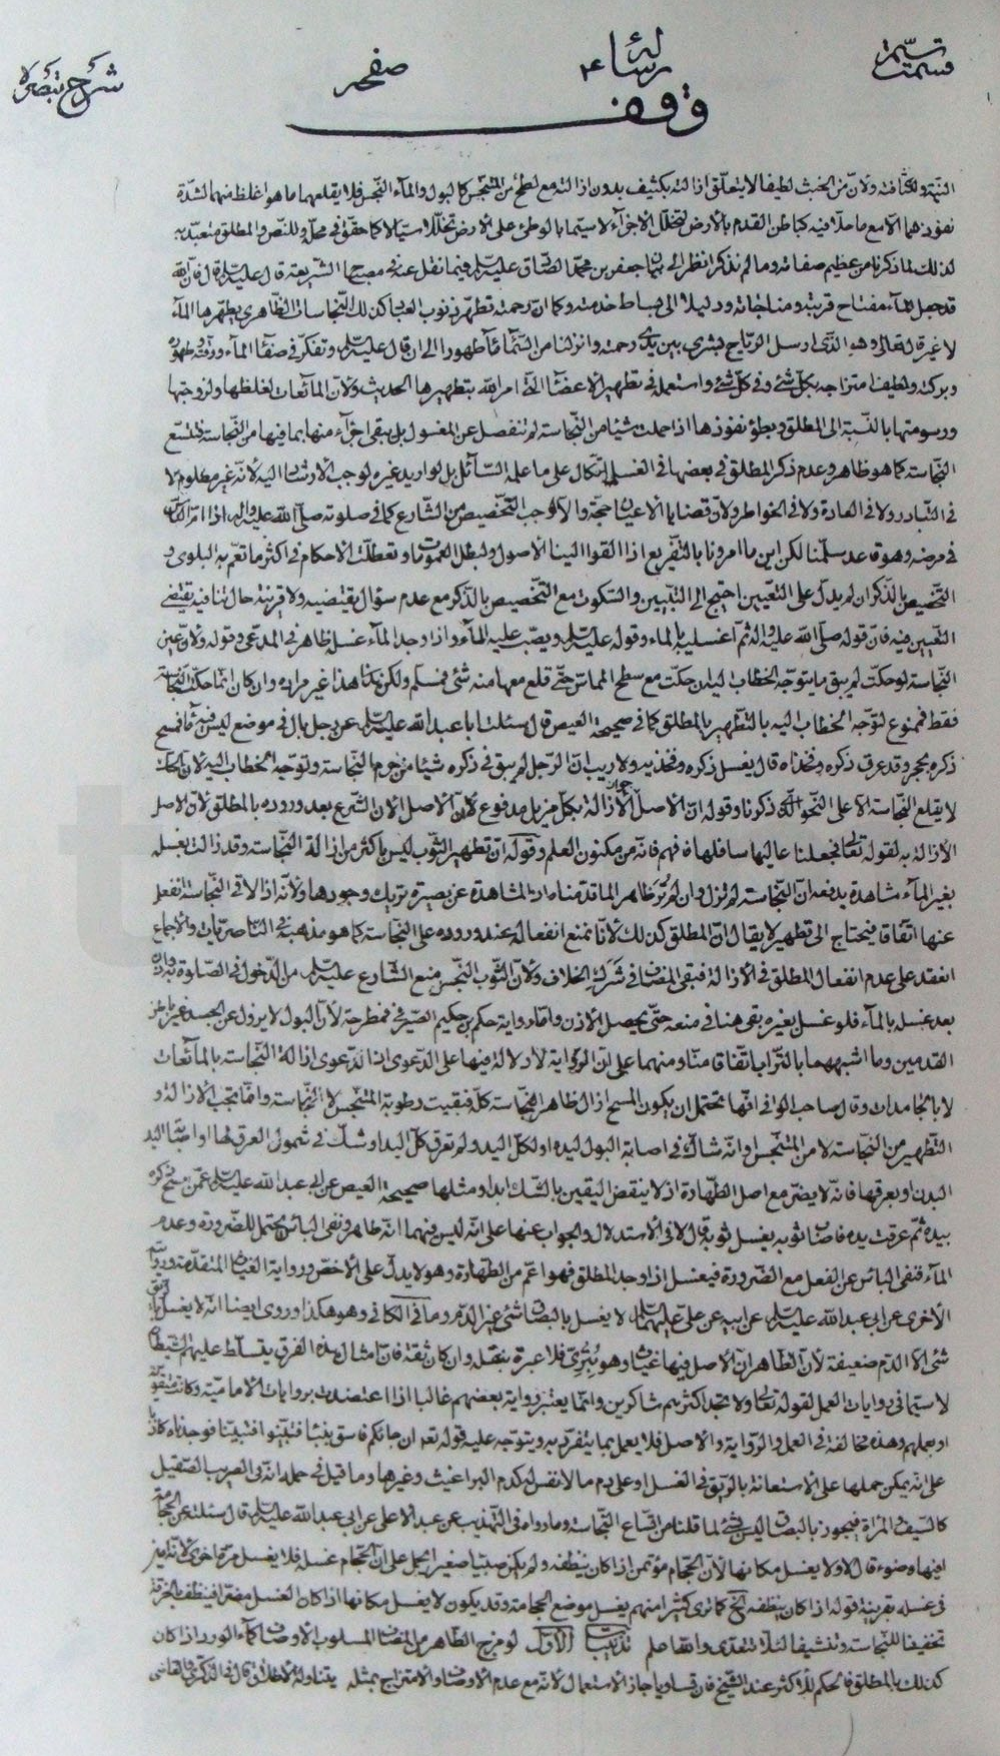 قسمت
رسالة
صفحه
شرح تبصرة
وقف
ولانّ من الخبث لطيفا لا يتعلّق ازالته بكثيف بدون ازالته مع لطخ من المتنجّس كالبول والمآء النّجس فلا يقلعهما ما هو اغلظ منهما لشدّة
نفوذهما الّا مع ما حلّا فيه كباطن القدم بالأرض لتخلّل الاجزآء لا سيّما بالوطئ على الأرض كما حقّق في محلّه وللنّص والمطلق متعبّد به
لذلك لما ذكرنا من عظيم صفاته وما لم نذكر انظر الى بيان جعفر بن محمّد الصّادق عليه السّلم فيما نقل عنه في مصباح الشّريعة قال عليه السّلم فانّ اللّه
قد جعل المآء مفتاح قربته ومناجاته ودليلا الى بساط خدمته وكما انّ رحمته تطهّر ذنوب العباد كذلك النّجاسات الظّاهرة يطهّرها المآء
لا غير قال تعالى وهو الّذى ارسل الرّياح بشرى بين يدى رحمته وانزلنا من السّمآء مآء طهورا الى ان قال عليه السّلم وتفكّر في صفآء المآء ورقّته وطهوره
وبركته ولطيف امتزاجه بكلّ شئ وفى كلّ شئ واستعمله في تطهير الأعضآء الّتى امر اللّه بتطهيرها الحديث ولانّ المآئعات لغلظها ولزوجتها
ورسومتها بالنّسبة الى المطلق وبطؤ نفوذها اذا حملت شيئا من النّجاسة لم تنفصل عن المغسول بل يبقى اجزآء منها بما فيها من النّجاسة فتتّسع
النّجاسة كما هو ظاهر وعدم ذكر المطلق في بعضها في الغسل اتّكال على ما علمه السّآئل بل لو اريد غيره لوجب الارشاد اليه لانّه غير معلوم لا
في التّبادر ولا في العادة ولا في الخواطر ولانّ قضايا الأعيان حجّة والّا لوجب التّخصيص من الشّارع كما في صلوته صلّى اللّه عليه وآله
في مرضه وهو قاعد سلّمنا لكن اين ما امرونا بالتّفريع اذا القوا الينا الاصول ولبطل العموم وتعطّلت الاحكام في اكثر ما تعمّ به البلوى و
التّخصيص بالذّكر ان لم يدلّ على التّعيين احتيج الى التّبيين والسّكوت مع التّخصيص بالذّكر مع عدم سؤال يقتضيه ولا قرينة حال تنافيه يقتضى
التّعيين فيه فانّ قوله صلّى اللّه عليه وآله ثمّ اغسليه بالماء وقوله عليه السّلم ويصبّ عليه المآء واذا وجد المآء غسل ظاهر في المدّعى وقوله ولانّ عين
النّجاسة لو حكّت لم يبق ما يتوجّه الخطاب اليه ان حكّت مع سطح المماسّ حتّى قلع معها منه شئ فمسلّم ولكن هذا غير مراده وان كان انّما حكّت النّجاسة
فقط فممنوع لتوّجه الخطاب اليه بالتّطهير بالمطلق كما في صحيحة العيص قال سئلت ابا عبد اللّه عليه السّلم عن رجل بال في موضع ليس فيه مآء فمسح
ذكره بحجر وقد عرق ذكره وفخذاه قال يغسل ذكره وفخذيه ولا ريب انّ الرّجل لم يبق في ذكره شيئا من جرم النّجاسة وتوّجه الخطاب اليه لانّ الحكّ
لا يقلع النّجاسة الّا على النّحو الّذى ذكرنا وقوله انّ الاصل جواز الأزالة بكلّ مزيل مدفوع لأنّ الاصل الان الشّرع بعد وروده بالمطلق لانّ الاصل
الأزالة به لقوله تعالى فجعلنا عاليها سافلها فافهم فانّه من مكنون العلم وقوله انّ تطهير الثّوب ليس باكثر من ازالة النّجاسة وقد زالت بغسله
بغير المآء مشاهدة يدفعه انّ النّجاسة لم تزل وان لم تُرَ ظاهر لما قدّمنا واذ المشاهدة عن بصيرة تريك وجودها ولأنّه اذا لاقى النّجاسة انفعل
عنها اتّفاقا فيحتاج الى تطهير لا يقال انّ المطلق كذلك لأنّا نمنع انفعاله عند وروده على النّجاسة كما هو مذهبه في النّاصريّات والأجماع
انعقد على عدم انفعال المطلق في الازالة فبقى المضاف في شَرَكِ الخلاف ولأنّ الثّوب النّجس منع الشّارع عليه السّلم من الدّخول في الصّلوة به
بعد غسله بالمآء فلو غسل بغيره بقى هنا في منعه حتّى يحصل الأذن وامّا رواية حكم بن حكيم الصّيرفى فمطرحة لأنّ البول لا يزول عن الجسد غير باطن
القدمين وما اشبههما بالتّراب اتّفاقا منّا ومنهما على انّ الرّواية لا دلالة فيها على الدّعوى اذ الدّعوى ازالة النّجاسة بالمآئعات
لا بالجامدات وقال صاحب الوافى انّها تحتمل ان يكون المسح ازال ظاهر النّجاسة كلّه فبقيت رطوبة المتنجّس لا النّجاسة وانّما تجب الازالة و
التّطهير من النّجاسة لا من المتنجّس وانّه شاكّ في اصابة البول ليده او لكلّ اليد ولم تعرق كلّ اليد او شكّ في شمول العرق لها او اصابة اليد
البدن او بعرقها فانّه لا يضرّ مع اصل الطّهارة اذ لا ينقض اليقين بالشّك ابدا ومثلها صحيحة العيص عن ابى عبد اللّه عليه السّلم عمّن مسح ذكره
بيده ثمّ عرقت يده فاصاب ثوبه يغسل ثوبه قال لا في الاستدلال والجواب عنها على انّه ليس فيهما انّه طاهر ونفى البأس يحتمل للضّرورة وعدم
المآء فنفى البأس عن الفعل مع الضّرورة فيغسل اذا وجد المطلق فهو اعمّ من الطّهارة وهو لا يدلّ على الأخصّ ورواية الغياث المتقدّمة وروايته
الأخرى عن ابى عبد اللّه عليه السّلم عن ابيه عن علىّ عليهما السّلم لا يغسل بالبصاق شئ غير الدّم وما في الكافى وهو هكذا وروى ايضا انّه لا يغسل بالرّيق
شئ الّا الدّم ضعيفة لأنّ الظّاهر انّ الاصل فيها غياث وهو بُترِىّ فلا عبرة بنقله وان كان ثقة فانّ امثال هذه الفرق يتسلّط عليهم الشّيطان
لا سيّما في روايات العمل لقوله تعالى ولا تجد اكثرهم شاكرين وانّما يعتبر رواية بعضهم غالبا اذا اعتضدت بروايات الأماميّة وكانت متلقّوة
او بعملهم وهذه مخالفة في العمل والرّواية والاصل فلا يعمل بما يتفرّد به ويتوجّه عليه قوله تعالى ان جآئكم فاسق بنبأ فتبيّنوا فتبيّنّا فوجدناه كاذبا
على انّه يمكن حملها على الأستعانة بالرّيق في الغسل او على دم ما لا نفس له كدم البراغيث وغيرها وما قيل في حمله انّه في القريب الصّقيل
كالسّيف والمرآة فيجوز بالبصاق ليس بشئ لما قلنا من اتّساع النّجاسة وما رواه في التّهذيب عن عبد الأعلى عن ابى عبد اللّه عليه السّلم قال سئلته عن الحجامة
افيها وضوء قال لا ولا يغسل مكانها لأنّ الحجّام مؤتمن اذا كان ينظّفه ولم يكن صبيّا صغيرا يحمل على انّ الحجّام غسله فلا يغسل مرّة اخرى لأنّه امين
في غسله بقرينة قوله اذا كان ينظّفه الخ كما ترى كثيرا منهم يغسل موضع الحجامة وقد يكون لا يغسل مكانها اذا كان الغسل مضرّا فينظّف بالخرقة
تخفيفا للنّجاسة وتنشيفا لئلّا تتعدّى واللّه اعلم تذنيب الأوّل لو مزج الطّاهر من المضاف المسلوب الاوصاف كمآء الورد اذا كان
كذلك بالمطلق فالحكم للأكثر عند الشّيخ فان تساويا جاز الاستعمال لأنّه مع عدم الاوصاف والامتزاج بمثله يتناوله الاطلاق قال في الذّكرى والقاضى